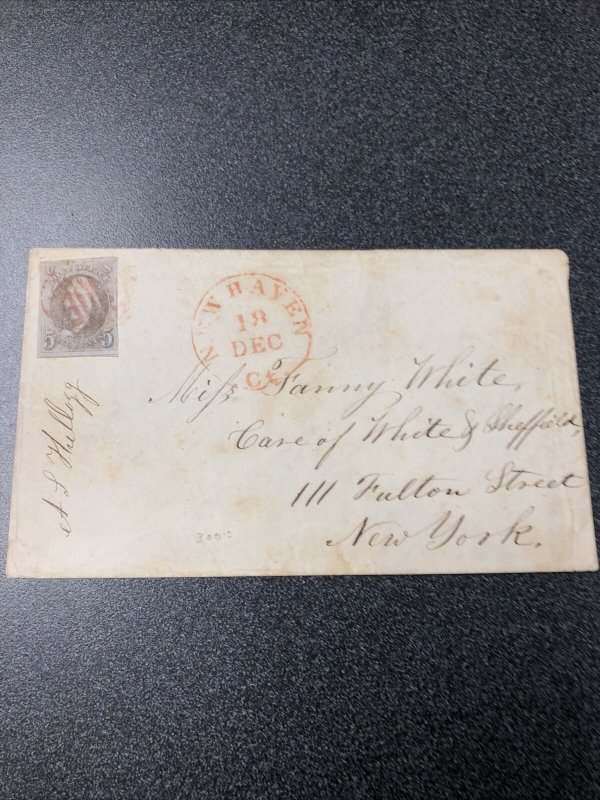 5 5
NEW HAVEN
18
DEC
Ct.
Miss Fanny White,
Care of White & Sheffield,
111 Fulton Street
New York.
A S
300-